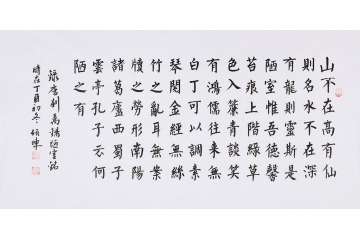 山不在高有仙
則名水不在深
有龍則靈斯是
陋室惟吾德馨
苔痕上階綠草
色入簾青談笑
有鴻儒往來無
白丁可以調素
琴閱金經無絲
竹之亂耳無案
牘之勞形南陽
諸葛廬西蜀子
雲亭孔子云何
陋之有
錄唐劉禹錫陋室銘
時在丁酉初冬